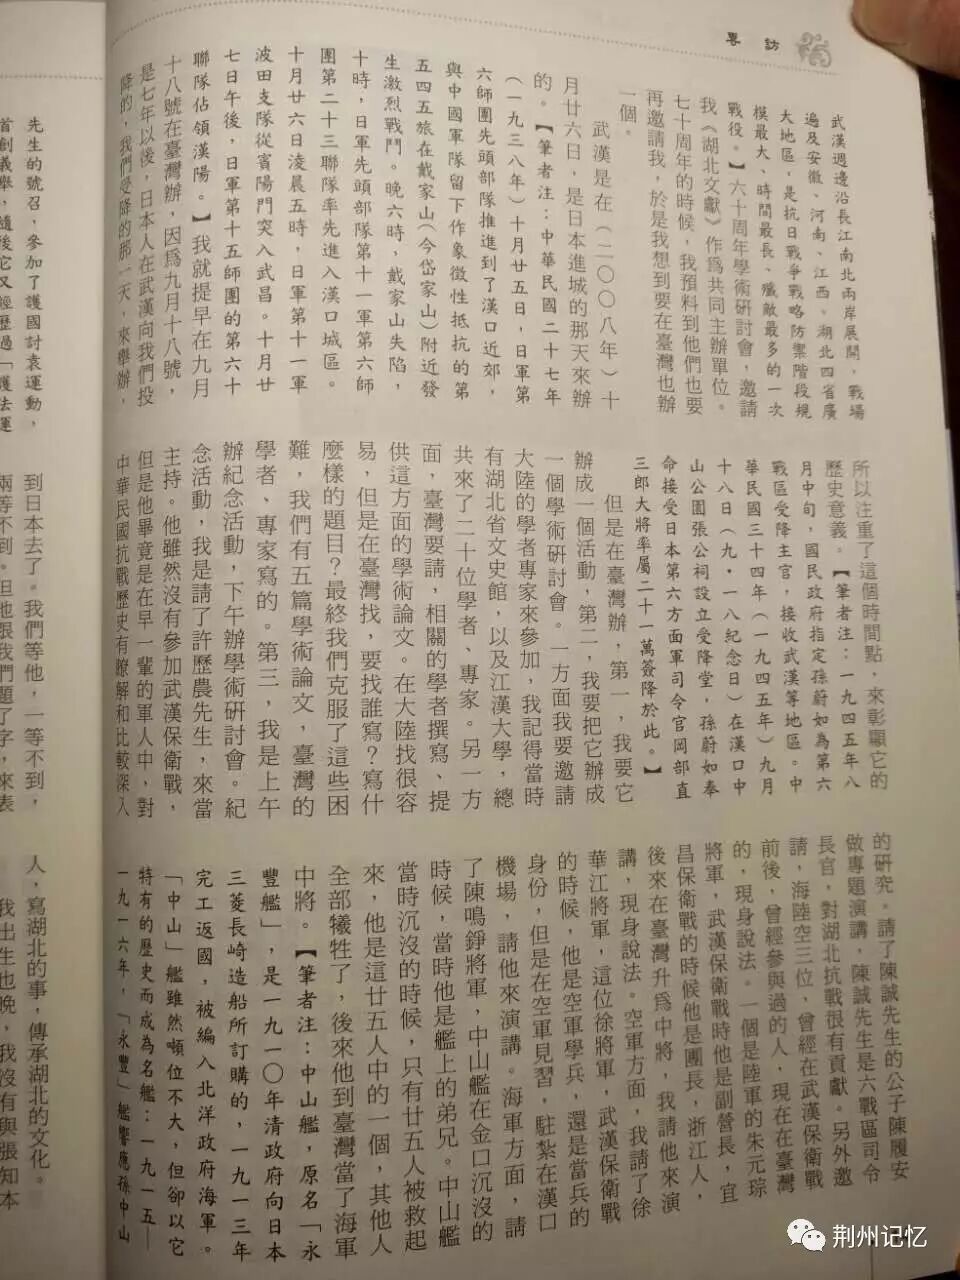 專訪
武漢週邊沿長江南北兩岸展開，戰場
遍及安徽、河南、江西、湖北四省廣
大地區，是抗日戰爭戰略防禦階段規
模最大、時間最長、殲敵最多的一次
戰役。】六十周年學術研討會，邀請
我《湖北文獻》作爲共同主辦單位。
七十周年的時候，我預料到他們也要
再邀請我，於是我想到要在臺灣也辦
一個。
武漢是在（二〇〇八年）十
月廿六日，是日本進城的那天來辦
的。【筆者注：中華民國二十七年
（一九三八年）十月廿五日，日軍第
六師團先頭部隊推進到了漢口近郊，
與中國軍隊留下作象徵性抵抗的第
五四五旅在戴家山（今岱家山）附近發
生激烈戰鬥。晚六時，戴家山失陷，
十時，日軍先頭部隊第十一軍第六師
團第二十三聯隊率先進入漢口城區。
十月廿六日凌晨五時，日軍第十一軍
波田支隊從賓陽門突入武昌。十月廿
七日午後，日軍第十五師團的第六十
聯隊佔領漢陽。】我就提早在九月
十八號在臺灣辦，因爲九月十八號，
是七年以後，日本人在武漢向我們投
降的，我們受降的那一天，來舉辦，
所以注重了這個時間點，來彰顯它的
歷史意義。【筆者注：一九四五年八
月中旬，國民政府指定孫蔚如為第六
戰區受降主官，接收武漢等地區。中
華民國三十四年（一九四五年）九月
十八日（九·一八紀念日）在漢口中
山公園張公祠設立受降堂，孫蔚如奉
命接受日本第六方面軍司令官岡部直
三郎大將率屬二十一萬簽降於此。】
但是在臺灣辦，第一，我要它
辦成一個活動，第二，我要把它辦成
一個學術研討會。一方面我要邀請
大陸的學者專家來參加，我記得當時
有湖北省文史館，以及江漢大學，總
共來了二十位學者、專家。另一方
面，臺灣要請，相關的學者撰寫、提
供這方面的學術論文。在大陸找很容
易，但是在臺灣找，要找誰寫？寫什
麼樣的題目？最終我們克服了這些困
難，我們有五篇學術論文，臺灣的
學者、專家寫的。第三，我是上午
辦紀念活動，下午辦學術研討會。紀
念活動，我是請了許歷農先生，來當
主持。他雖然沒有參加武漢保衛戰，
但是他畢竟是在早一輩的軍人中，對
中華民國抗戰歷史有瞭解和比較深入
的研究。請了陳誠先生的公子陳履安
做專題演講，陳誠先生是六戰區司令
長官，對湖北抗戰很有貢獻。另外邀
請，海陸空三位，曾經在武漢保衛戰
前後，曾經參與過的人，現在在臺灣
的，現身說法。一個是陸軍的朱元琮
將軍，武漢保衛戰時他是副營長，宜
昌保衛戰的時候他是團長，浙江人，
後來在臺灣升爲中將，我請他來演
講，現身說法。空軍方面，我請了徐
華江將軍，這位徐將軍，武漢保衛戰
的時候，他是空軍學兵，還是當兵的
身份，但是在空軍見習，駐紮在漢口
機場，請他來演講。海軍方面，請
了陳鳴錚將軍，中山艦在金口沉沒的
時候，當時他是艦上的弟兄。中山艦
當時沉沒的時候，只有廿五人被救起
來，他是這廿五人中的一個，其他人
全部犧牲了，後來他到臺灣當了海軍
中將。【筆者注：中山艦，原名「永
豐艦」，是一九一〇年清政府向日本
三菱長崎造船所訂購的，一九一三年
完工返國，被編入北洋政府海軍。
「中山」艦雖然噸位不大，但卻以它
特有的歷史而成為名艦：一九一五—
一九一六年，「永豐」艦響應孫中山
先生的號召，參加了護國討袁運動，
首創義舉，隨後它又經歷過「護法運
到日本去了。我們等他，一等不到，
兩等不到。但他張我們題了字，來表
人，寫湖北的事，傳承湖北的文化。
我出生也晚，我沒有與張知本
荆州记忆